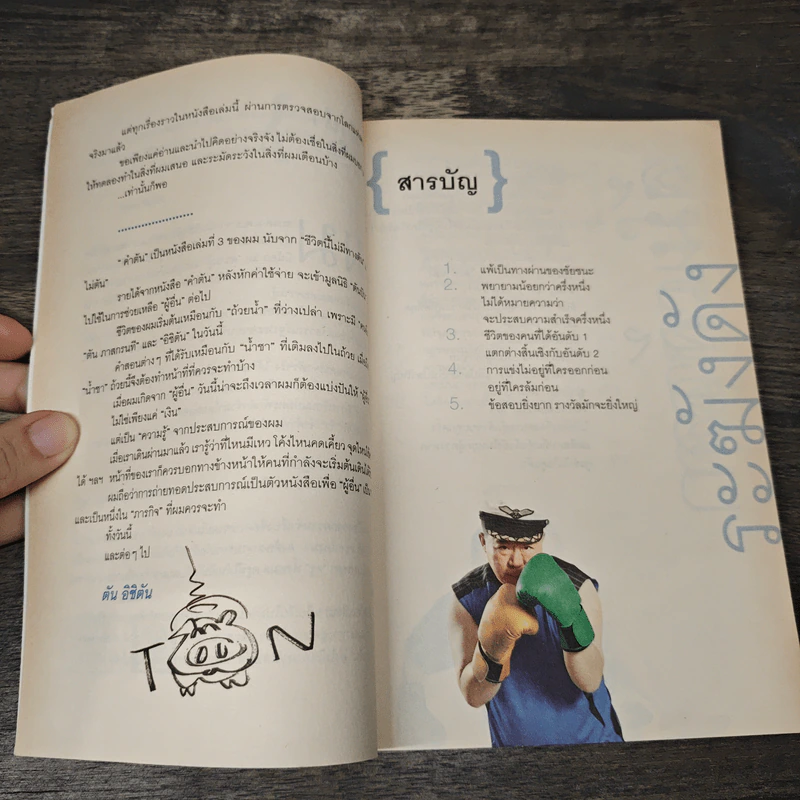 แต่ทุกเรื่องราวในหนังสือเล่มนี้ ผ่านการตรวจสอบจากโลกแห่งความ
จริงมาแล้ว
ขอเพียงแค่อ่านและนำไปคิดอย่างจริงจัง ไม่ต้องเชื่อในสิ่งที่ผม
ให้ทดลองทำในสิ่งที่ผมเสนอ และระมัดระวังในสิ่งที่ผมเตือนบ้าง
...เท่านั้นก็พอ
.....................
"คำตัน" เป็นหนังสือเล่มที่ 3 ของผม นับจาก "ชีวิตนี้ไม่มีทางตัน"
ไม่ตัน"
รายได้จากหนังสือ "คำตัน" หลังหักค่าใช้จ่าย จะเข้ามูลนิธิ
ไปใช้ในการช่วยเหลือ "ผู้อื่น" ต่อไป
ชีวิตของผมเริ่มต้นเหมือนกับ "ถ้วยน้ำ" ที่ว่างเปล่า เพราะมี
"ตัน ภาสกรนที" และ "อิชิตัน" ในวันนี้
คำสอนต่างๆ ที่ได้รับเหมือนกับ "น้ำชา" ที่เติมลงไปในถ้วย
"น้ำชา" ถ้วยนี้จึงต้องทำหน้าที่ที่ควรจะทำบ้าง
เมื่อผมเกิดจาก "ผู้อื่น" วันนี้น่าจะถึงเวลาผมก็ต้องแบ่งปันให้
ไม่ใช่เพียงแค่ "เงิน"
แต่เป็น "ความรู้" จากประสบการณ์ของผม
เมื่อเราเดินผ่านมาแล้ว เรารู้ว่าที่ไหนมีเหว โค้งไหนคดเคี้ยว
ได้ ฯลฯ หน้าที่ของเราก็ควรบอกทางข้างหน้าให้คนที่กำลังจะเริ่มต้นเดิน
ผมถือว่าการถ่ายทอดประสบการณ์เป็นตัวหนังสือเพื่อ "ผู้อื่น"
และเป็นหนึ่งใน "ภารกิจ" ที่ผมควรจะทำ
ทั้งวันนี้
และต่อๆ ไป
ตัน อิชิตัน
T N
{ สารบัญ }
1. แพ้เป็นทางผ่านของชัยชนะ
2. พยายามน้อยกว่าครึ่งหนึ่ง
ไม่ได้หมายความว่า
จะประสบความสำเร็จครึ่งหนึ่ง
3. ชีวิตของคนที่ได้อันดับ 1
แตกต่างสิ้นเชิงกับอันดับ 2
4. การแข่งไม่อยู่ที่ใครออกก่อน
อยู่ที่ใครล้มก่อน
5. ข้อสอบยิ่งยาก รางวัลมักจะยิ่งใหญ่
ระฆังดัง